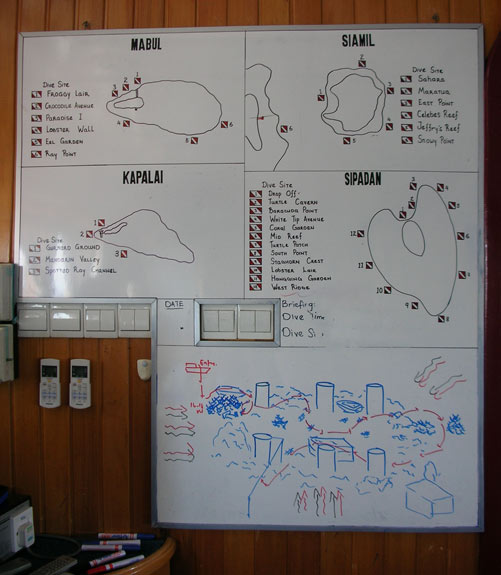 MABUL
Dive Site
Froggy Lair
Crocodile Avenue
Paradise I
Lobster Wall
Eel Garden
Ray Point
1
2
3
4
5
6
SIAMIL
Dive Site
Sahara
Maratua
East Point
Celebes Reef
Jeffry's Reef
Snowy Point
1
2
3
5
6
KAPALAI
Dive Site
Gurnard Ground
Mandarin Valley
Spotted Ray Channel
1
2
3
SIPADAN
Dive Site
Drop Off
Turtle Cavern
Barracuda Point
White Tip Avenue
Coral Garden
Mid Reef
Turtle Patch
South Point
Staghorn Crest
Lobster Lair
Hanging Garden
West Ridge
1
2
3
4
5
6
8
9
10
11
12
DATE
Briefing:
Dive Time
Dive Si
Entry